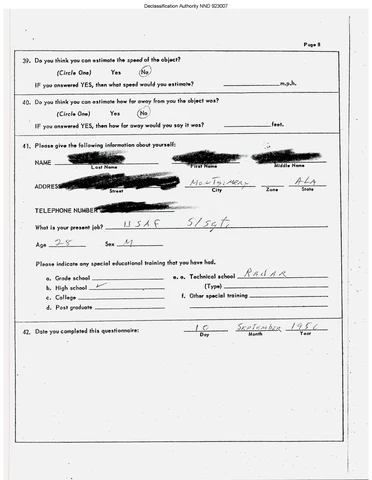 Declassification Authority NND 923007
Page 8
39. Do you think you can estimate the speed of the object?
(Circle One) Yes No
IF you answered YES, then what speed would you estimate? m.p.h.
40. Do you think you can estimate how far away from you the object was?
(Circle One) Yes No
IF you answered YES, then how far away would you say it was? feet.
41. Please give the following information about yourself:
NAME
Last Name First Name Middle Name
ADDRESS MONTGOMERY ALA
Street City Zone State
TELEPHONE NUMBER
What is your present job? USAF S/Sgt.
Age 28 Sex M
Please indicate any special educational training that you have had.
a. Grade school e. a. Technical school RADAR
b. High school ✓ (Type)
c. College f. Other special training
d. Post graduate
42. Date you completed this questionnaire: 10 September 1956
Day Month Year